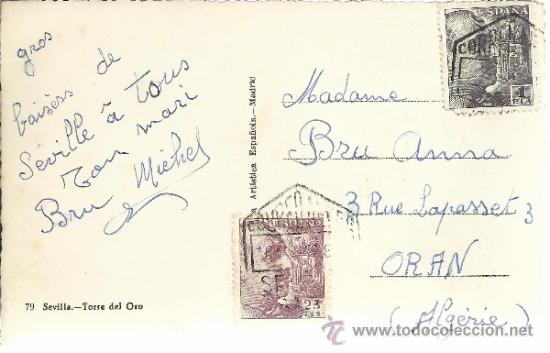 gros
baisers de
Séville à tous
Ton mari
Bru Michel
79 Sevilla.—Torre del Oro
Artística Española.—Madrid
ESPAÑA
CORREO
1
PTA
Madame
Bru Anna
3 Rue Lapasset 3
ORAN
(Algérie)
25
CTS
todocoleccion.net